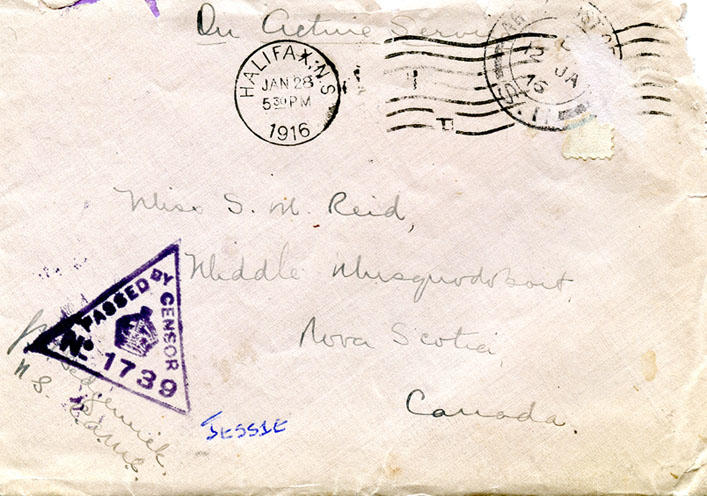 On Active Service
HALIFAX, N.S.
JAN 28
5 30 PM
1916
12
JA
Miss S. M. Reid,
Middle Musquodoboit,
Nova Scotia,
Canada.
PASSED BY CENSOR
No. 1739
JESSIE